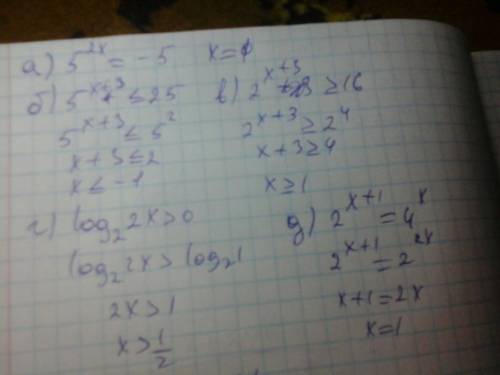 а) 5^{2x} = -5  x = ϕ
б) 5^{x+3} ≤ 25
5^{x+3} ≤ 5^2
x+3 ≤ 2
x ≤ -1
в) 2^{x+3} ≥ 16
2^{x+3} ≥ 2^4
x+3 ≥ 4
x ≥ 1
г) log_2 2x > 0
log_2 2x > log_2 1
2x > 1
x > 1/2
д) 2^{x+1} = 4^x
2^{x+1} = 2^{2x}
x+1 = 2x
x = 1